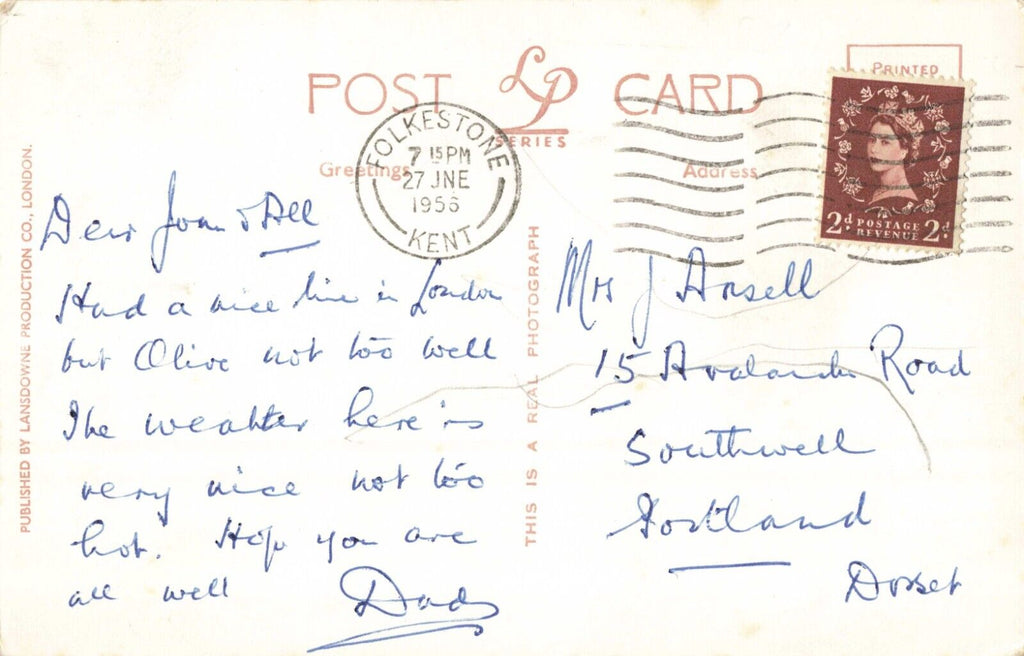 POST LP CARD
SERIES
PRINTED
Greetings
Address
FOLKESTONE
7 15 PM
27 JNE
1956
KENT
2d. POSTAGE 2d.
REVENUE
PUBLISHED BY LANSDOWNE PRODUCTION CO., LONDON.
THIS IS A REAL PHOTOGRAPH
Dear Joan & All
Had a nice time in London
but Olive not too well
The weather here is
very nice not too
hot. Hop you are
all well
Dad
Mrs J Ansell
15 Road
Southwell
Portland
Dorset